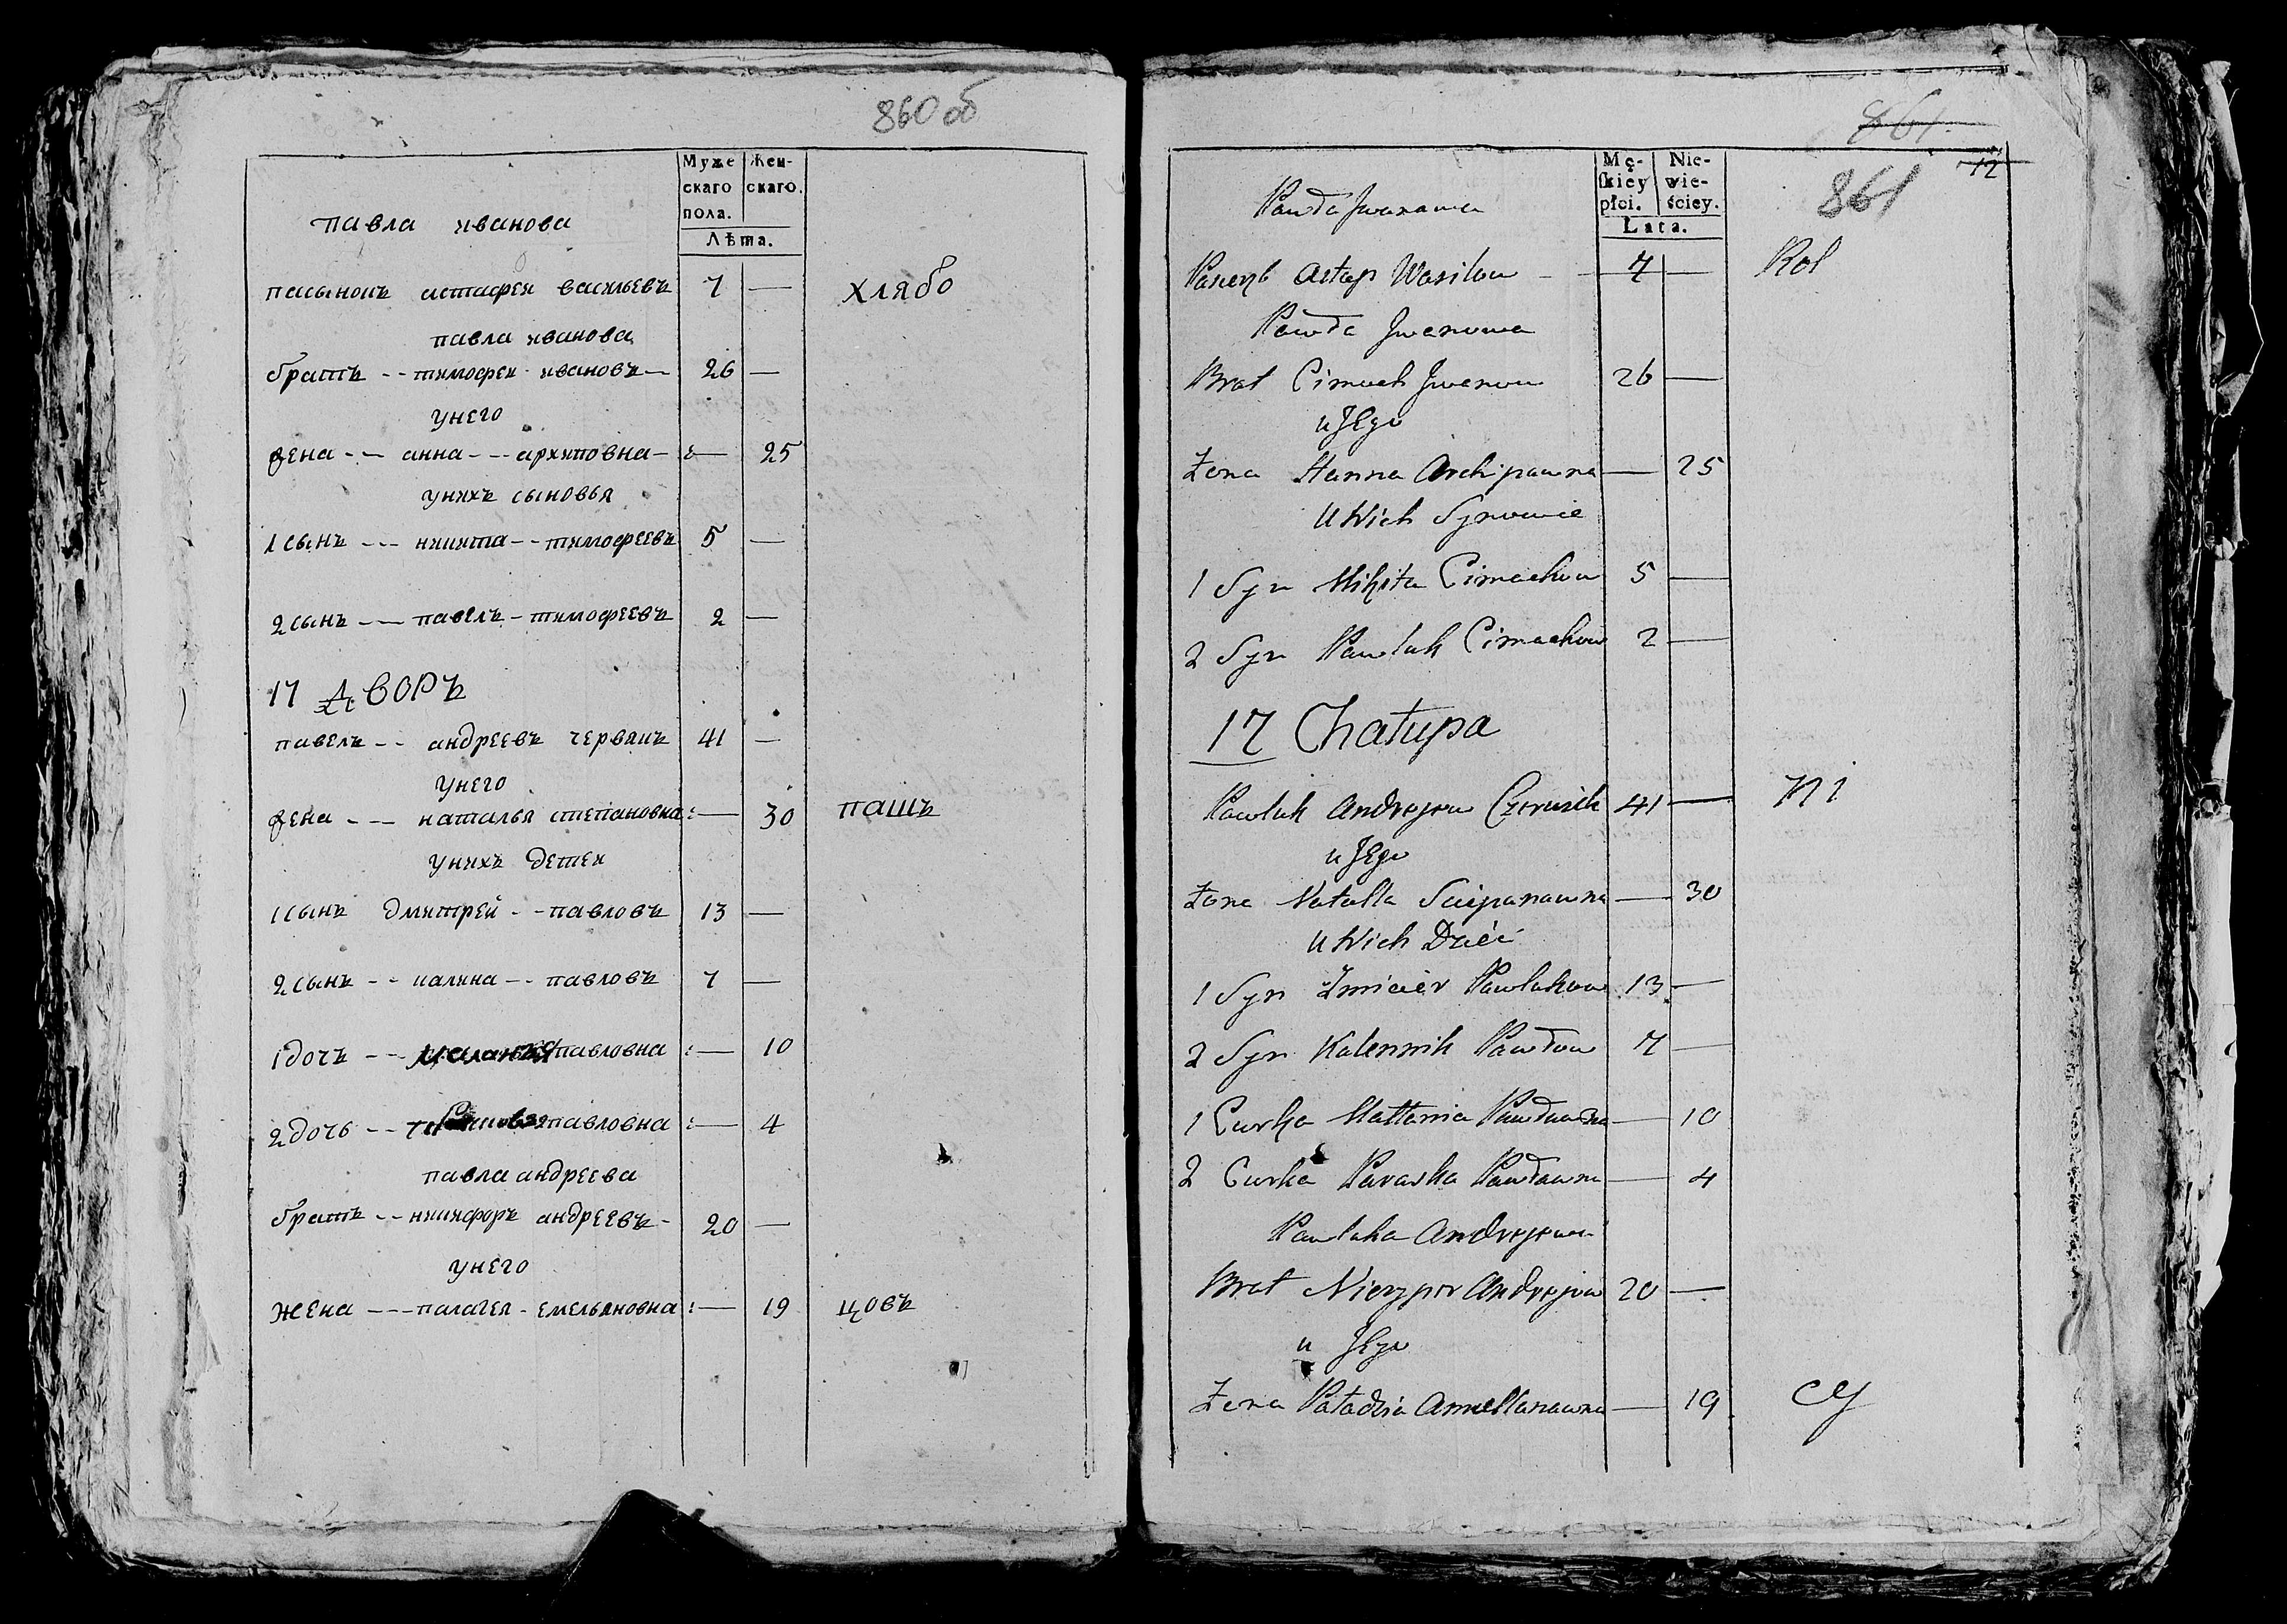 860 об
Муже
скаго
пола.
Жен-
скаго.
Лѣта.
павла иванова
пасынокъ астафеи васильевъ 7 — хлябо
павла иванова
братъ -- тимофеи - ивановъ — 26 —
унего
жена -- анна -- архиповна — :— 25
унихъ сыновья
1 сынъ --- никита -- тимофеевъ 5 —
2 сынъ --- павелъ - тимофеевъ 2 —
17 дворъ
павелъ -- андреевъ червяпъ 41 —
унего
жена --- наталья степановна :— 30 пашъ
унихъ детеи
1 сынъ дмитрей -- павловъ 13 —
2 сынъ -- калина -- павловъ 7 —
1 дочъ -- маланья павловна :— 10
2 дочь -- павловна :— 4
павла андреева
братъ -- никифоръ андреевъ - 20 —
унего
жена --- палагея - емельяновна :— 19 цовъ
861.
12
861
Mę-
ſkiey
płci.
Nie-
wie-
ściey.
Lata.
Pawła Jwanowa
Astap Wasilow — 7 — Rol
Pawła Jwanowa
Brat Cimoch Jwanow 26 —
u Jego
Żona Hanna Archipawna — 25
u Nich Synowie
1 Syn Mikita Cimachow 5 —
2 Syn Pawluk Cimachow 2 —
17 Chałupa
Pawluk Andrejew Czerwiak 41 — ni
u Jego
Żona Natalla Sciepanawna — 30
u Nich Dzieci
1 Syn Zmicier Pawlukow 13 —
2 Syn Kalennik Pawłow 7 —
1 Curka Mallania Pawławna — 10
2 Curka Paraska Pawławna — 4
Pawluka Andrejewa
Brat Nieczypor Andrejew 20 —
u Jego
Żona Paładzia Amellanawna — 19 cy